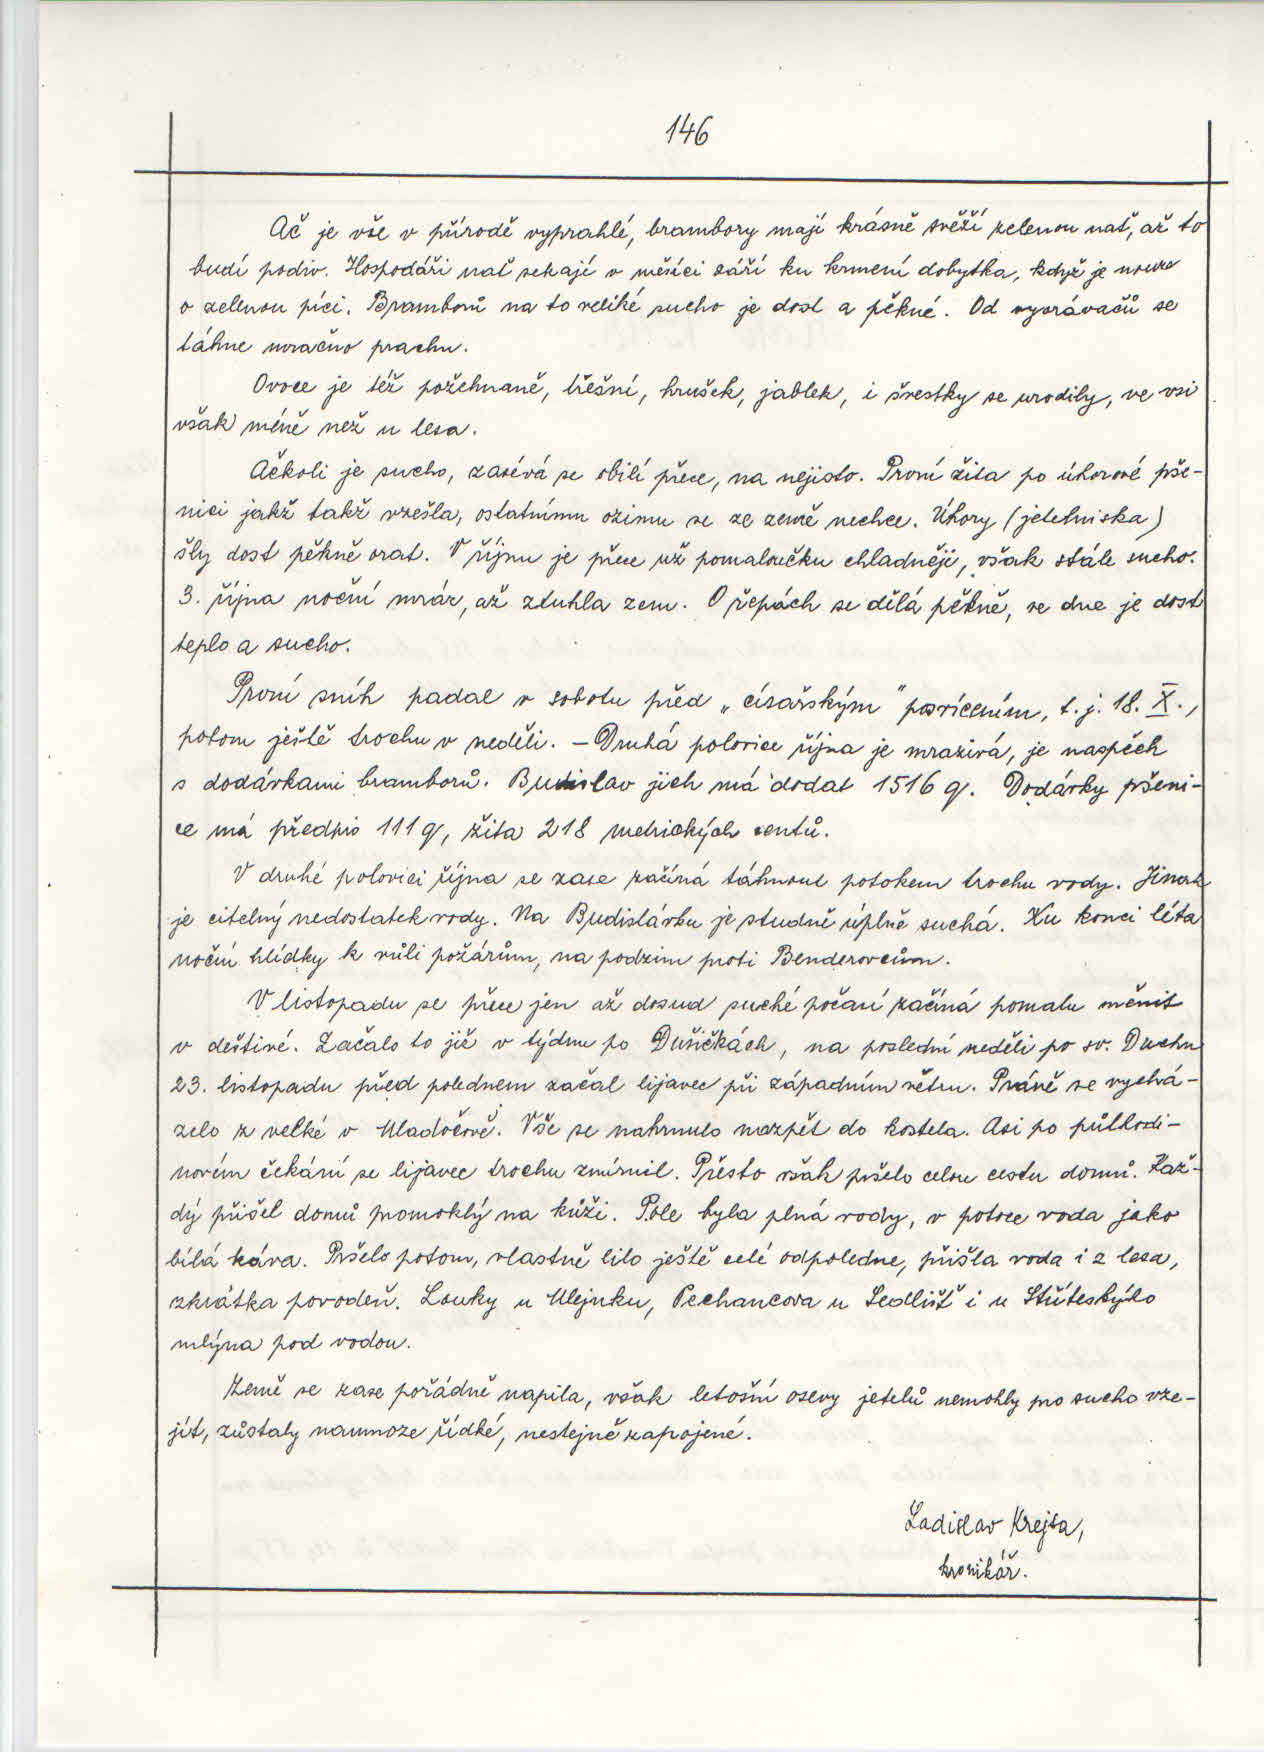 146
Ač je vše v přírodě vyprahlé, brambory mají krásně svěží zelenou nať, až to
budí podiv. Hospodáři nať sekají v měsíci září ku krmení dobytka, když je nouze
o zelenou píci. Bramborů na to veliké sucho je dost a pěkné. Od vyorávačů se
táhne mračno prachu.
Ovoce je též požehnaně, třešní, hrušek, jablek, i švestky se urodily, ve vsi
však méně než u lesa.
Ačkoli je sucho, zasévá se obilí přece, na nejisto. První žita po úhorové pše-
nici jakž takž vzešla, ostatnímu ozimu se ze země nechce. Úhory (jeteliniska)
šly dost pěkně orat. V říjnu je přece už pomaloučku chladněji, však stále sucho.
3. října noční mráz, až ztuhla zem. O řepách se dělá pěkně, ve dne je dost
teplo a sucho.
První sníh padal v sobotu před „císařským" posvícením, t. j. 18. X.,
potom ještě trochu v neděli. – Druhá polovice října je mrazivá, je naspěch
s dodávkami bramborů. Budislav jich má dodat 1516 q. Dodávky pšeni-
ce má předpis 111 q, žita 218 metrických centů.
V druhé polovici října se zase začíná táhnout potokem trochu vody. Jinak
je citelný nedostatek vody. Na Budislávku je studně úplně suchá. Ku konci léta
noční hlídky k vůli požárům, na podzim proti Benderovcům.
V listopadu se přece jen až dosud suché počasí začíná pomalu měnit
v deštivé. Začalo to již v týdnu po Dušičkách, na poslední neděli po sv. Duchu
23. listopadu před polednem začal lijavec při západním větru. Právě se vychá-
zelo z velké v Mladočově. Vše se nahrnulo nazpět do kostela. Asi po půlhodi-
novém čekání se lijavec trochu zmírnil. Přesto však pršelo celou cestu domů. Kaž-
dý přišel domů promoklý na kůži. Pole byla plná vody, v potoce voda jako
bílá káva. Pršelo potom, vlastně lilo ještě celé odpoledne, přišla voda i z lesa,
zkrátka povodeň. Louky u Mlejnku, Pechancova u Sedlišť i u Stříteskýho
mlýna pod vodou.
Země se zase pořádně napila, však letošní osevy jetelů nemohly pro sucho vze-
jít, zůstaly namnoze řídké, nestejně zapojené.
Ladislav Krejsa,
kronikář.